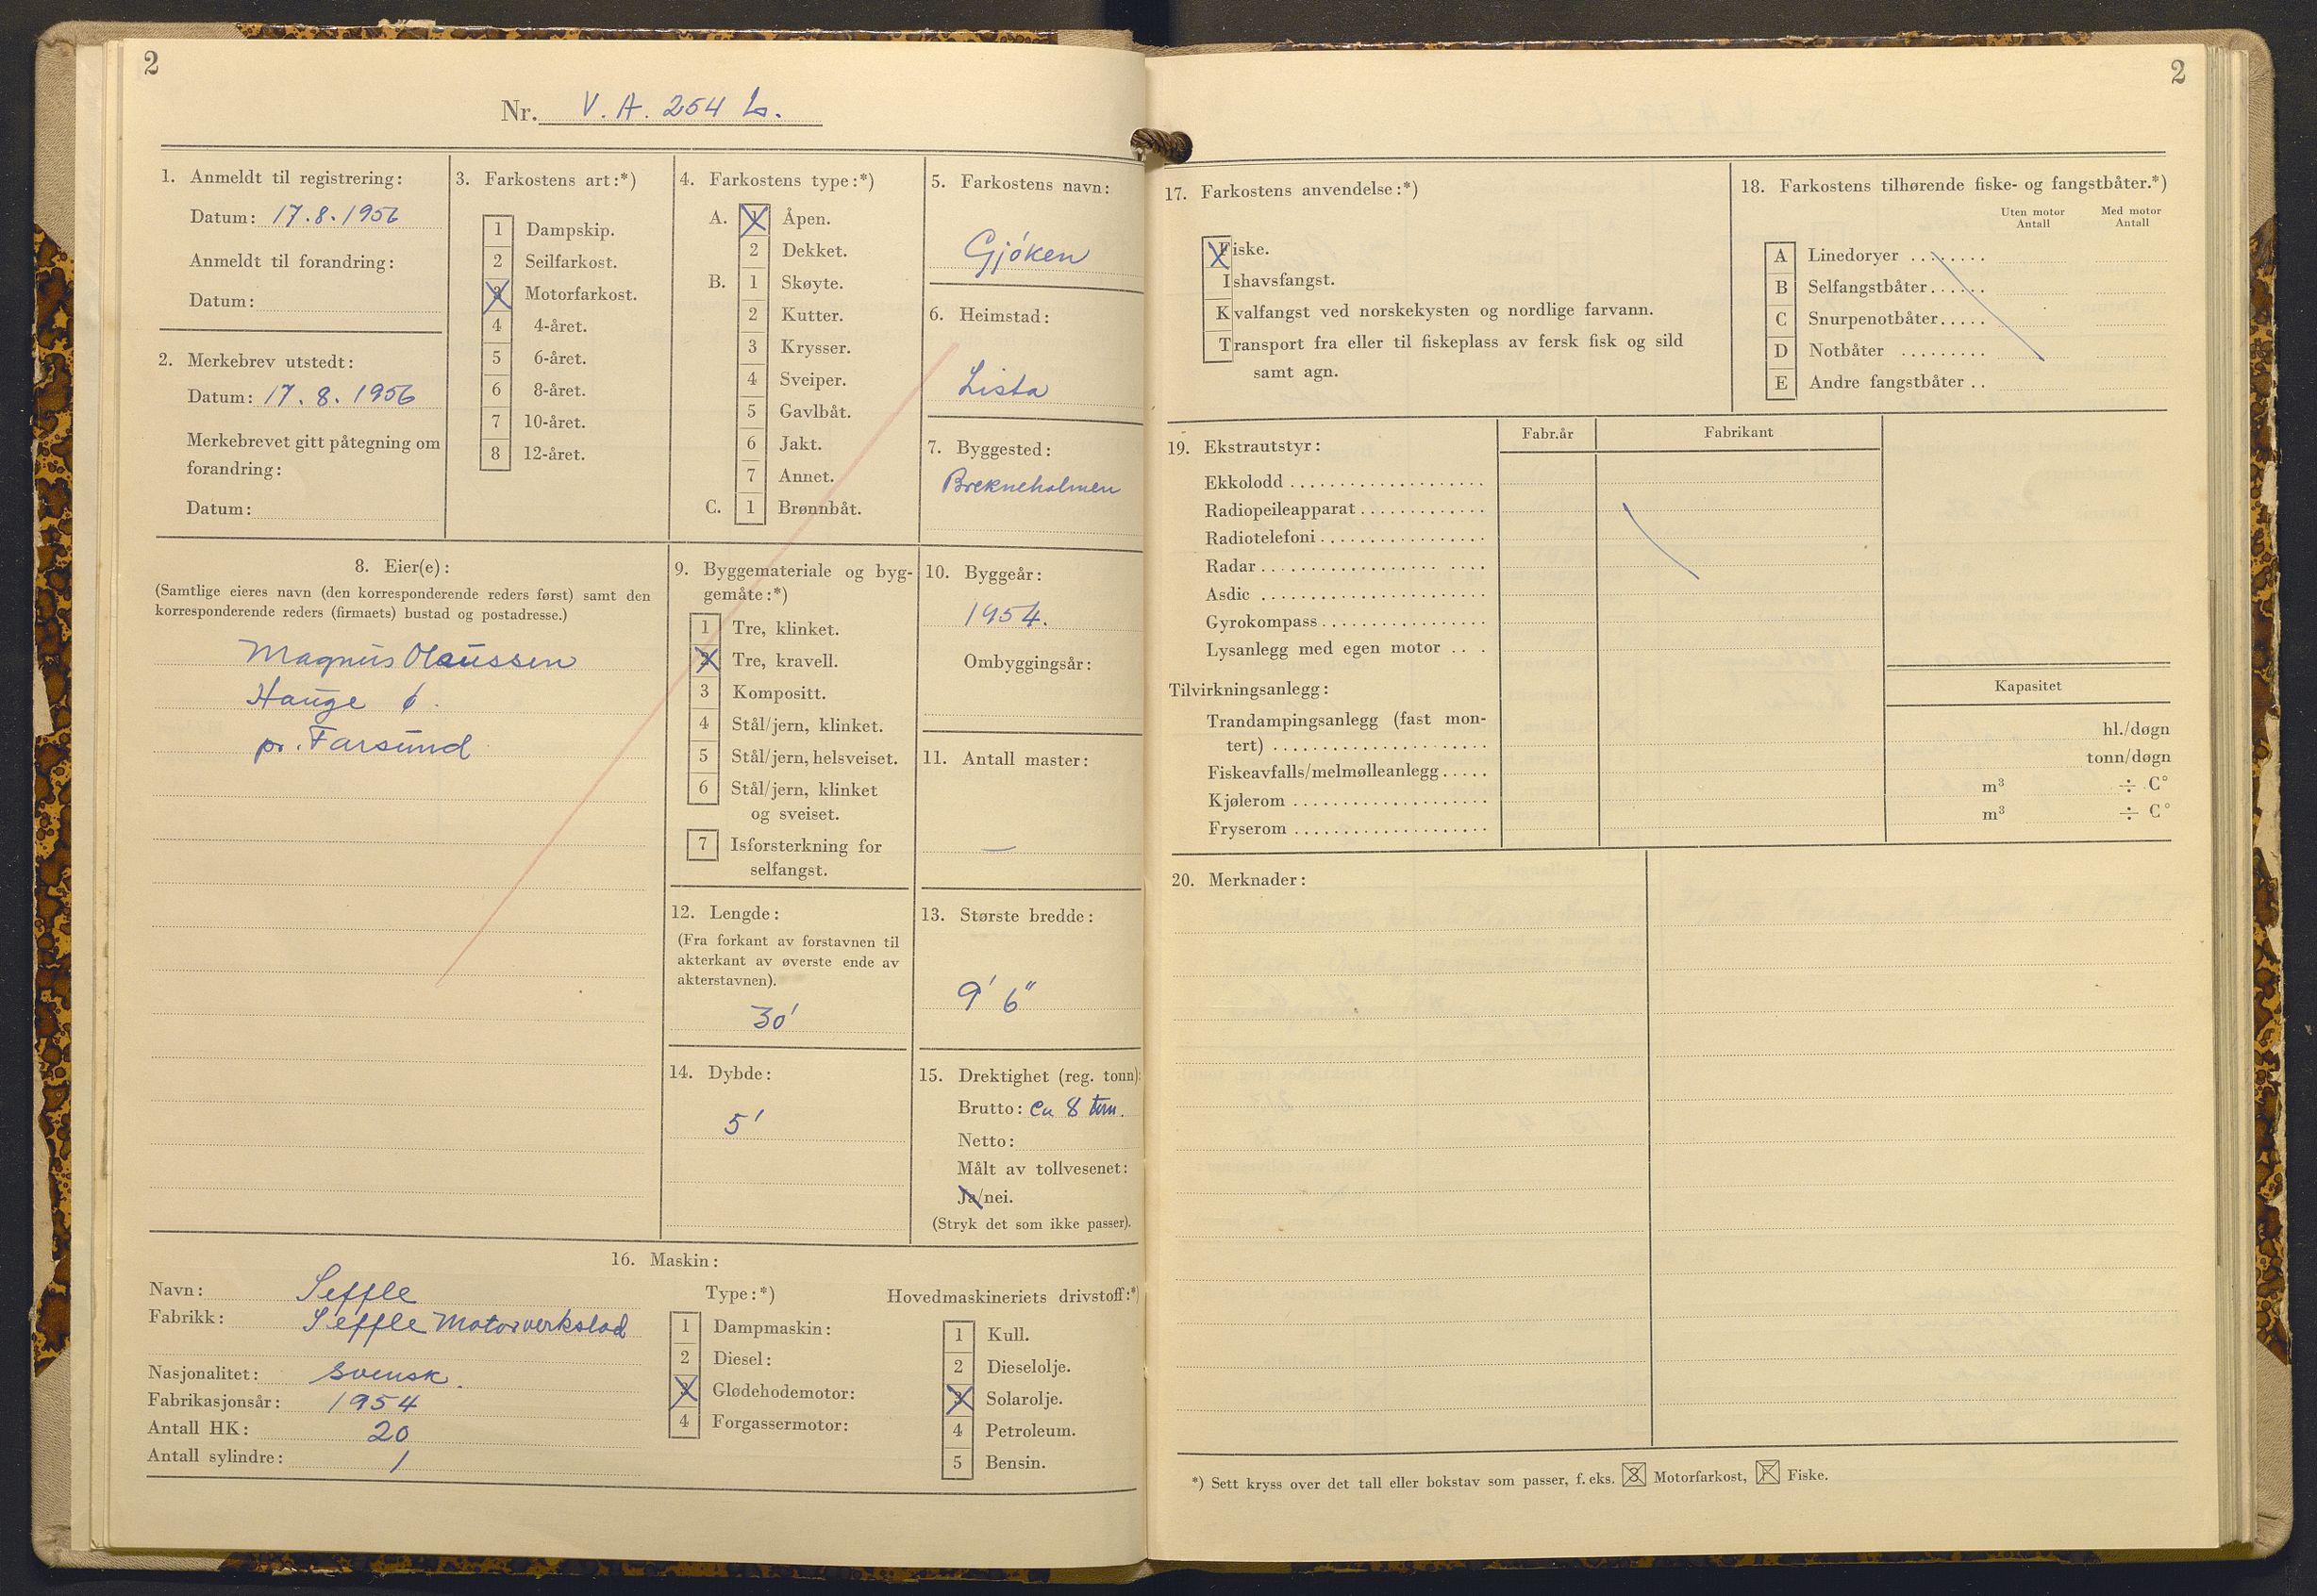 2
Nr. V. A. 254 L.
1. Anmeldt til registrering:
Datum: 17.8.1956
Anmeldt til forandring:
Datum:
2. Merkebrev utstedt:
Datum: 17.8.1956
Merkebrevet gitt påtegning om
forandring:
Datum:
3. Farkostens art:*)
1 Dampskip.
2 Seilfarkost.
3 Motorfarkost.
4 4-året.
5 6-året.
6 8-året.
7 10-året.
8 12-året.
4. Farkostens type:*)
A. 1 Åpen.
2 Dekket.
B. 1 Skøyte.
2 Kutter.
3 Krysser.
4 Sveiper.
5 Gavlbåt.
6 Jakt.
7 Annet.
C. 1 Brønnbåt.
5. Farkostens navn:
Gjøken
6. Heimstad:
Lista
7. Byggested:
Brekneholmen
8. Eier(e):
(Samtlige eieres navn (den korresponderende reders først) samt den
korresponderende reders (firmaets) bustad og postadresse.)
Magnus Olaussen
Hauge
pr. Farsund
9. Byggemateriale og byg-
gemåte:*)
1 Tre, klinket.
2 Tre, kravell.
3 Kompositt.
4 Stål/jern, klinket.
5 Stål/jern, helsveiset.
6 Stål/jern, klinket
og sveiset.
7 Isforsterkning for
selfangst.
10. Byggeår:
1954.
Ombyggingsår:
11. Antall master:
—
12. Lengde:
(Fra forkant av forstavnen til
akterkant av øverste ende av
akterstavnen).
30'
13. Største bredde:
9' 6"
14. Dybde:
5'
15. Drektighet (reg. tonn):
Brutto: ca 8 tonn.
Netto:
Målt av tollvesenet:
Ja/nei.
(Stryk det som ikke passer).
16. Maskin:
Navn: Seffle
Fabrikk: Seffle Motorverkstad
Nasjonalitet: svensk.
Fabrikasjonsår: 1954
Antall HK: 20
Antall sylindre: 1
Type:*)
1 Dampmaskin:
2 Diesel:
3 Glødehodemotor:
4 Forgassermotor:
Hovedmaskineriets drivstoff:*)
1 Kull.
2 Dieselolje.
3 Solarolje.
4 Petroleum.
5 Bensin.
2
17. Farkostens anvendelse:*)
Fiske.
Ishavsfangst.
Kvalfangst ved norskekysten og nordlige farvann.
Transport fra eller til fiskeplass av fersk fisk og sild
samt agn.
18. Farkostens tilhørende fiske- og fangstbåter.*)
Uten motor Antall
Med motor Antall
A Linedoryer ........
B Selfangstbåter......
C Snurpenotbåter.....
D Notbåter .........
E Andre fangstbåter ..
19. Ekstrautstyr:
Fabr.år Fabrikant
Ekkolodd ....................
Radiopeileapparat.............
Radiotelefoni.................
Radar.......................
Asdic .......................
Gyrokompass.................
Lysanlegg med egen motor ...
Tilvirkningsanlegg:
Kapasitet
Trandampingsanlegg (fast mon-
tert) ...................... hl./døgn
Fiskeavfalls/melmølleanlegg..... tonn/døgn
Kjølerom .................... m³ ÷ C°
Fryserom .................... m³ ÷ C°
20. Merknader:
*) Sett kryss over det tall eller bokstav som passer, f. eks. 3 Motorfarkost, F Fiske.